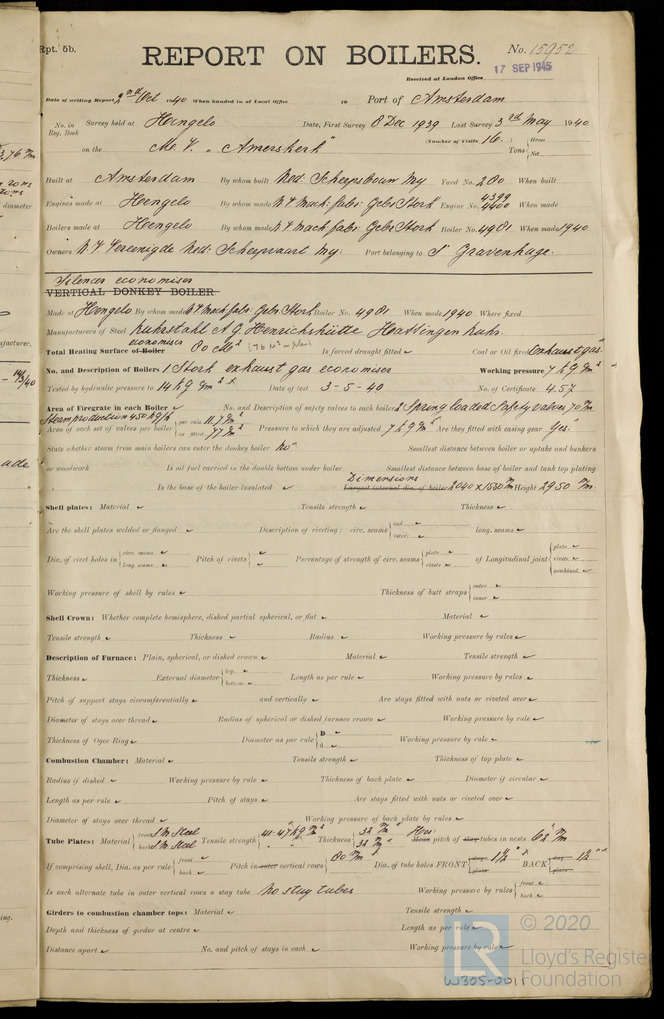 Rpt. 5b.
REPORT ON BOILERS.
No. 15952
17 SEP 1945
Received at London Office
Date of writing Report 2nd Oct 1940 When handed in at Local Office 19 Port of Amsterdam
No. in Reg. Book Survey held at Hengelo Date, First Survey 8 Dec 1939 Last Survey 3rd May 1940
on the M.V. "Amerskerk" (Number of Visits 16.) Tons Gross Net
Built at Amsterdam By whom built Ned. Scheepsbouw My Yard No. 280 When built
Engines made at Hengelo By whom made N.V. Mach: fabr: Gebr Stork Engine No. 4399 4400 When made
Boilers made at Hengelo By whom made N.V. Mach. fabr: Gebr Stork Boiler No. 4981 When made 1940
Owners N.V. Vereenigde Ned. Scheepvaart My. Port belonging to S' Gravenhage.
Silencer economiser
VERTICAL DONKEY BOILER
Made at Hengelo By whom made N.V. Mach. fabr. Gebr. Stork Boiler No. 4981 When made 1940 Where fixed
Manufacturers of Steel Ruhrstahl A.G. Henrichshütte Hattingen Ruhr.
economiser
Total Heating Surface of Boiler 80 M² Is forced draught fitted Coal or Oil fired Exhaust gas
No. and Description of Boilers 1 Stork exhaust gas economiser Working pressure 7
Tested by hydraulic pressure to 14 Date of test 3-5-40 No. of Certificate 457
Area of Firegrate in each Boiler No. and Description of safety valves to each boiler 2 Spring loaded Safety valves 70
Steam production 450
Area of each set of valves per boiler per rule 11.7 as fitted 77 Pressure to which they are adjusted 7 Are they fitted with easing gear Yes.
State whether steam from main boilers can enter the donkey boiler no Smallest distance between boiler or uptake and bunkers
or woodwork Is oil fuel carried in the double bottom under boiler Smallest distance between base of boiler and tank top plating
Dimensions
Is the base of the boiler insulated Largest internal dia. of boiler 2040 x 1530 Height 2950
Shell plates: Material Tensile strength Thickness
Are the shell plates welded or flanged Description of riveting: circ. seams end inter. long. seams
Dia. of rivet holes in circ. seams long. seams Pitch of rivets Percentage of strength of circ. seams plate rivets of Longitudinal joint plate rivets combined
Working pressure of shell by rules Thickness of butt straps outer inner
Shell Crown: Whether complete hemisphere, dished partial spherical, or flat Material
Tensile strength Thickness Radius Working pressure by rules
Description of Furnace: Plain, spherical, or dished crown Material Tensile strength
Thickness External diameter top bottom Length as per rule Working pressure by rules
Pitch of support stays circumferentially and vertically Are stays fitted with nuts or riveted over
Diameter of stays over thread Radius of spherical or dished furnace crown Working pressure by rule
Thickness of Ogee Ring Diameter as per rule D d Working pressure by rule
Combustion Chamber: Material Tensile strength Thickness of top plate
Radius if dished Working pressure by rule Thickness of back plate Diameter if circular
Length as per rule Pitch of stays Are stays fitted with nuts or riveted over
Diameter of stays over thread Working pressure of back plate by rules
Tube Plates: Material front S M Steel back S M Steel Tensile strength 41-47 Thickness 32 32 Mean pitch of stay tubes in nests 62
If comprising shell, Dia. as per rule front back Pitch in outer vertical rows 80 Dia. of tube holes FRONT stay plain 1½" BACK stay plain 1½"
Is each alternate tube in outer vertical rows a stay tube No stay tubes Working pressure by rules front back
Girders to combustion chamber tops: Material Tensile strength
Depth and thickness of girder at centre Length as per rule
Distance apart No. and pitch of stays in each Working pressure by rule
LR © 2020
Lloyd's Register
Foundation
W305-0011